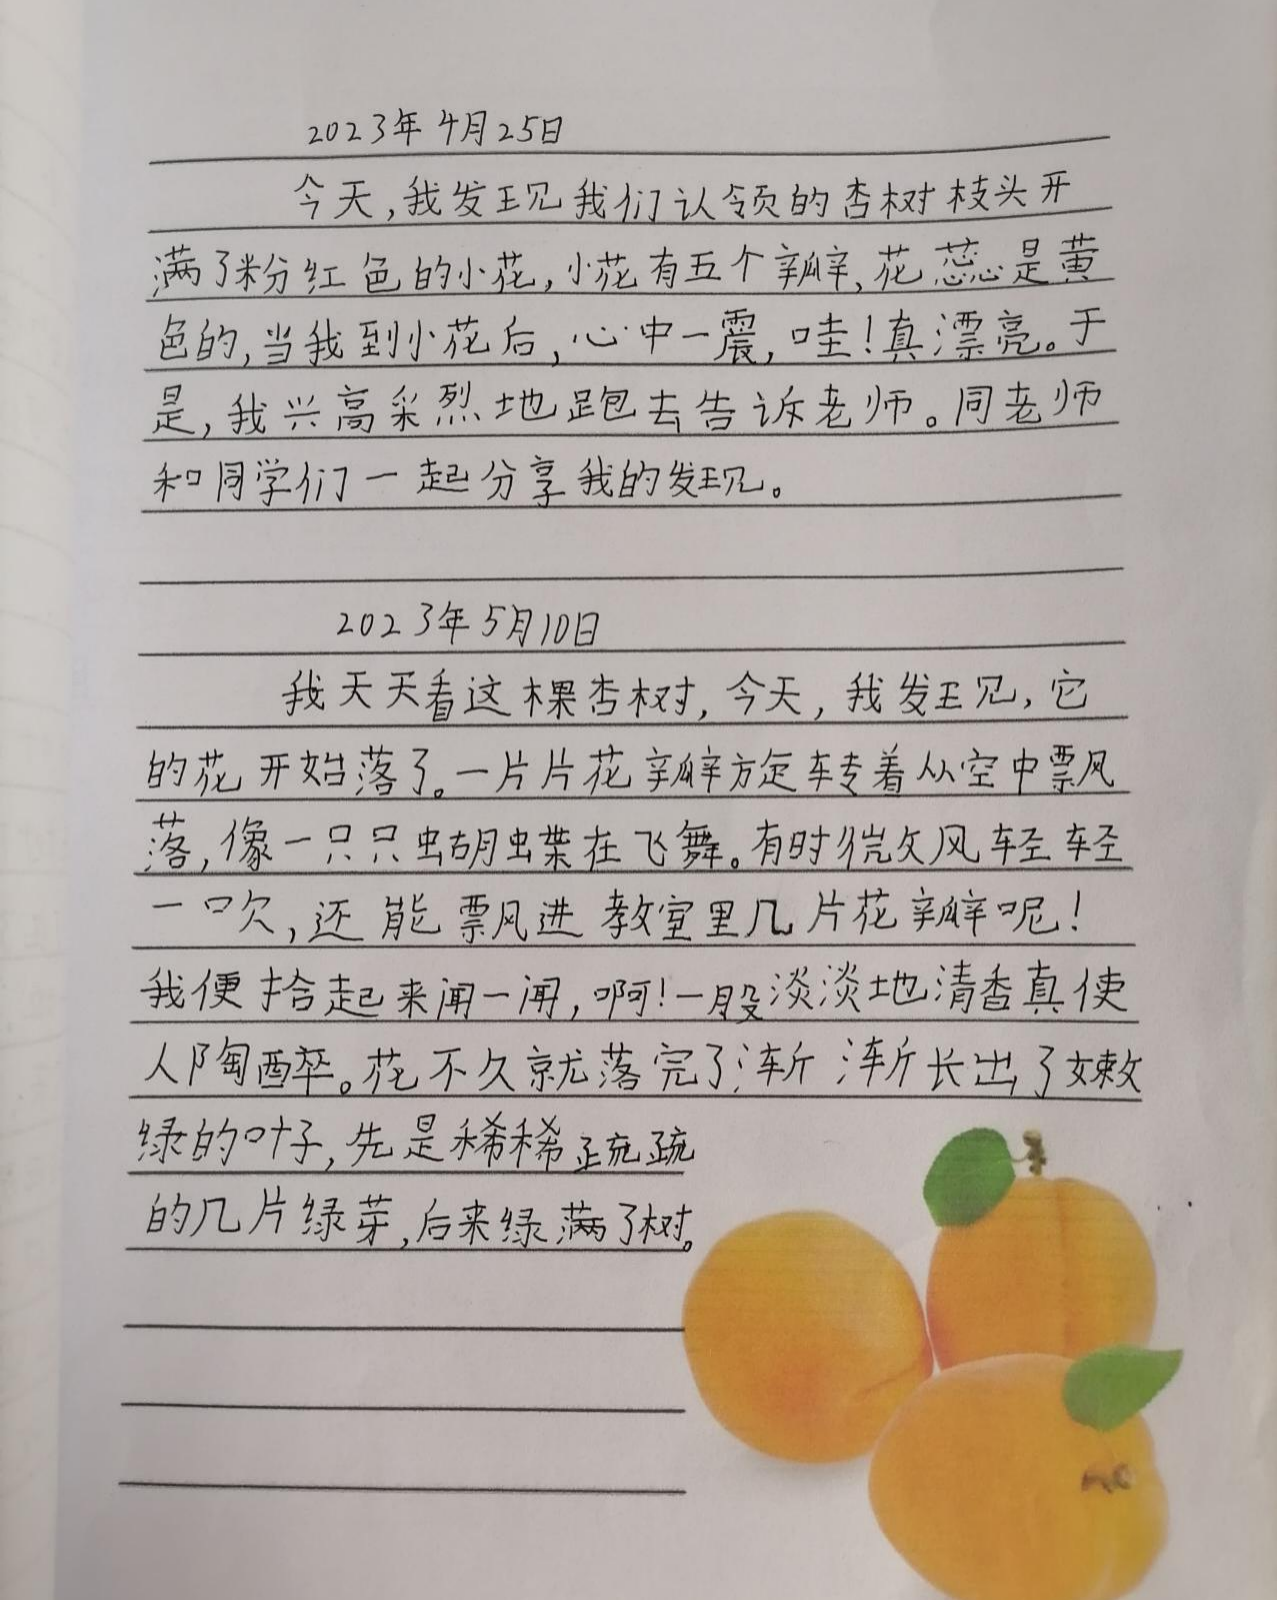 2023年4月25日
今天,我发现我们认领的杏树枝头开
满了粉红色的小花,小花有五个瓣,花蕊是黄
色的,当我到小花后,心中一震,哇!真漂亮。于
是,我兴高采烈地跑去告诉老师。同老师
和同学们一起分享我的发现。
2023年5月10日
我天天看这棵杏树,今天,我发现,它
的花开始落了。一片片花瓣旋转着从空中飘
落,像一只只蝴蝶在飞舞。有时微风轻轻
一吹,还能飘进教室里几片花瓣呢!
我便拾起来闻一闻,啊!一股淡淡地清香真使
人陶醉。花不久就落完了渐渐长出了嫩
绿的叶子,先是稀稀疏疏
的几片绿芽,后来绿满了树。